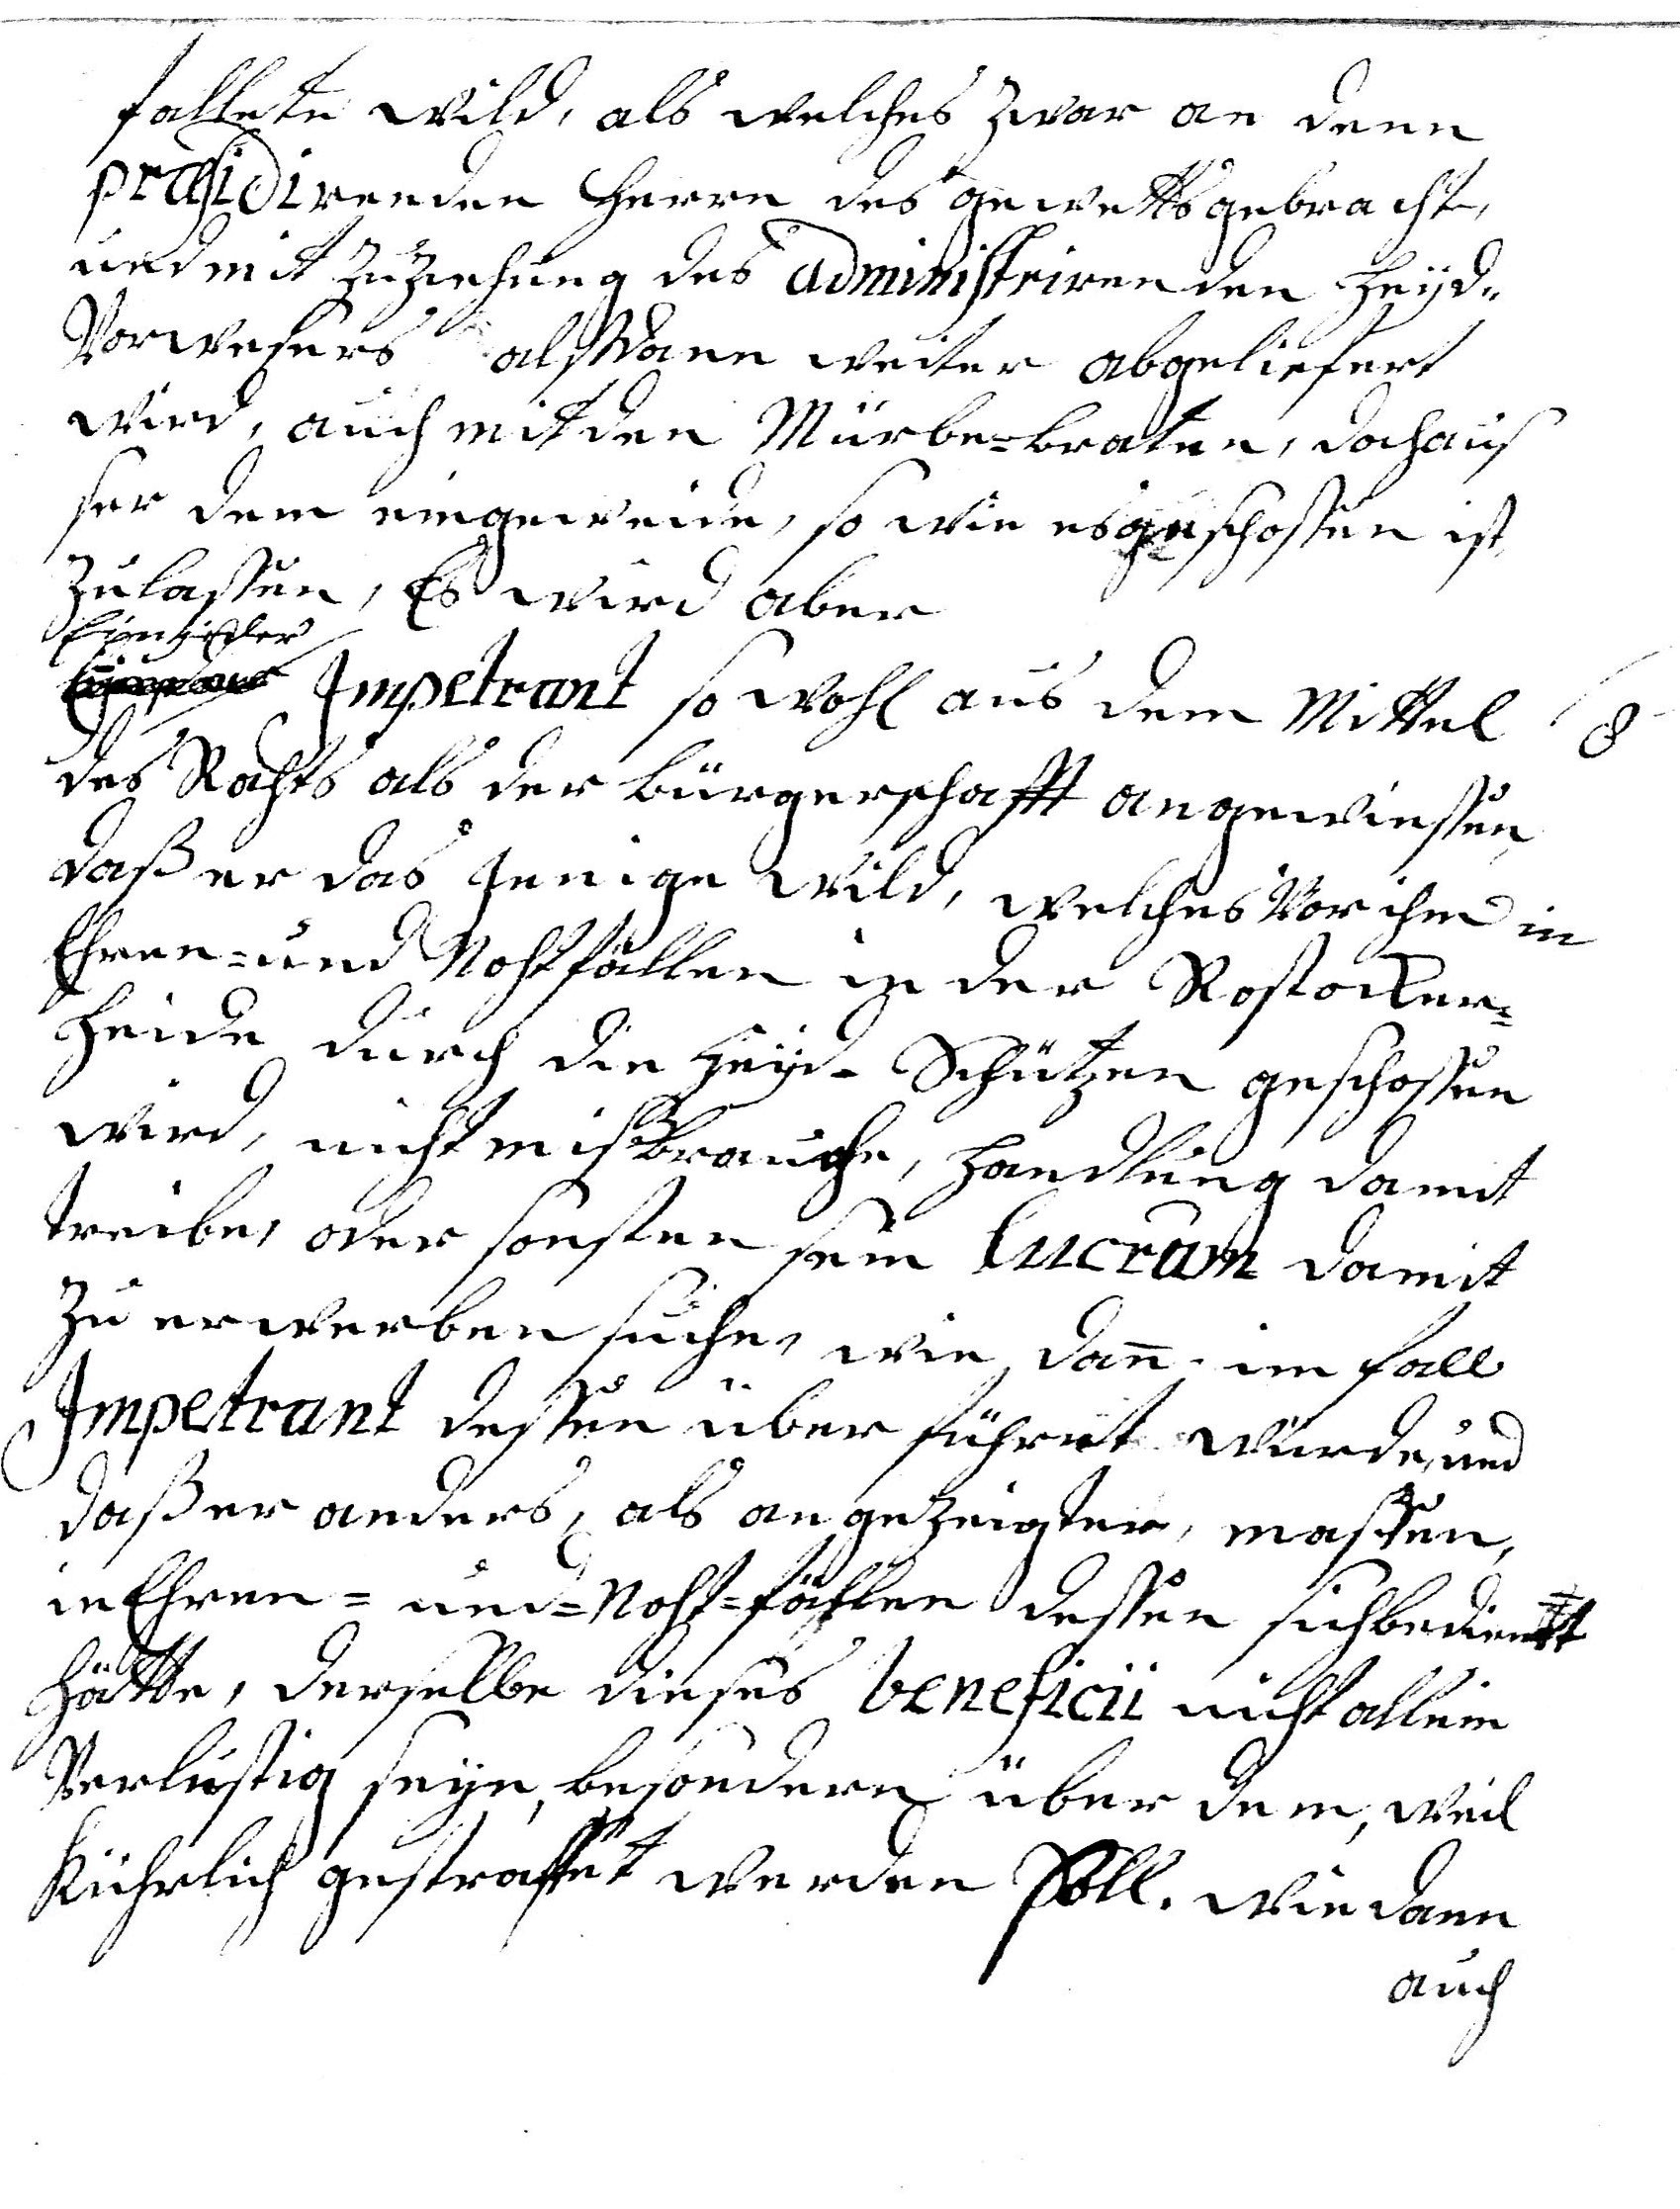 fallete wild, als welches zwar an denn
præsidirenden Herrn des gewetts gebracht,
und mit zuziehung des administrirenden Heyd-
Vorwesers alßdann weiter abgeliefert
wird, auch mit den Mürbe-braten, doch auß
ser dem eingeweide, so wie es geschossen ist,
zulassen, Es wird aber
Ein jeder
Impetrant so wohl aus dem Mittel
8
des Rahts als der bürgerschafft angewiesen,
daß er das Jenige wild, welches Vor ihm in
Ehren- und Nohtfällen in der Rostocker-
Heide durch die Heyd- Schützen geschossen
wird, nicht mißbrauche, Handlung damit
treibe, oder sonsten sein lucrum damit
zu erwerben suche, wie dañ im fall
Impetrant dessen über führet würde, und
daß er anders, als angezeigter, massen,
in Ehren- und-Noht-fählen dessen sich bedient
hätte, derselbe dieses beneficii nicht allein
Verlustig seyn, besondern über dem, weil
kührlich gestraffet werden soll. wie dann
auch